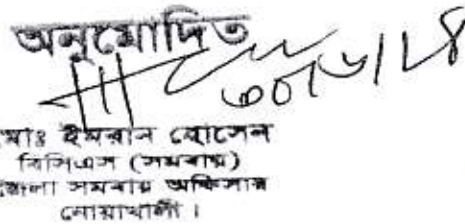 অনুমোদিত
৩০/৬/১৪
মোঃ ইমরান হোসেন
বিসিএস (সমবায়)
জেলা সমবায় অফিসার
নোয়াখালী।